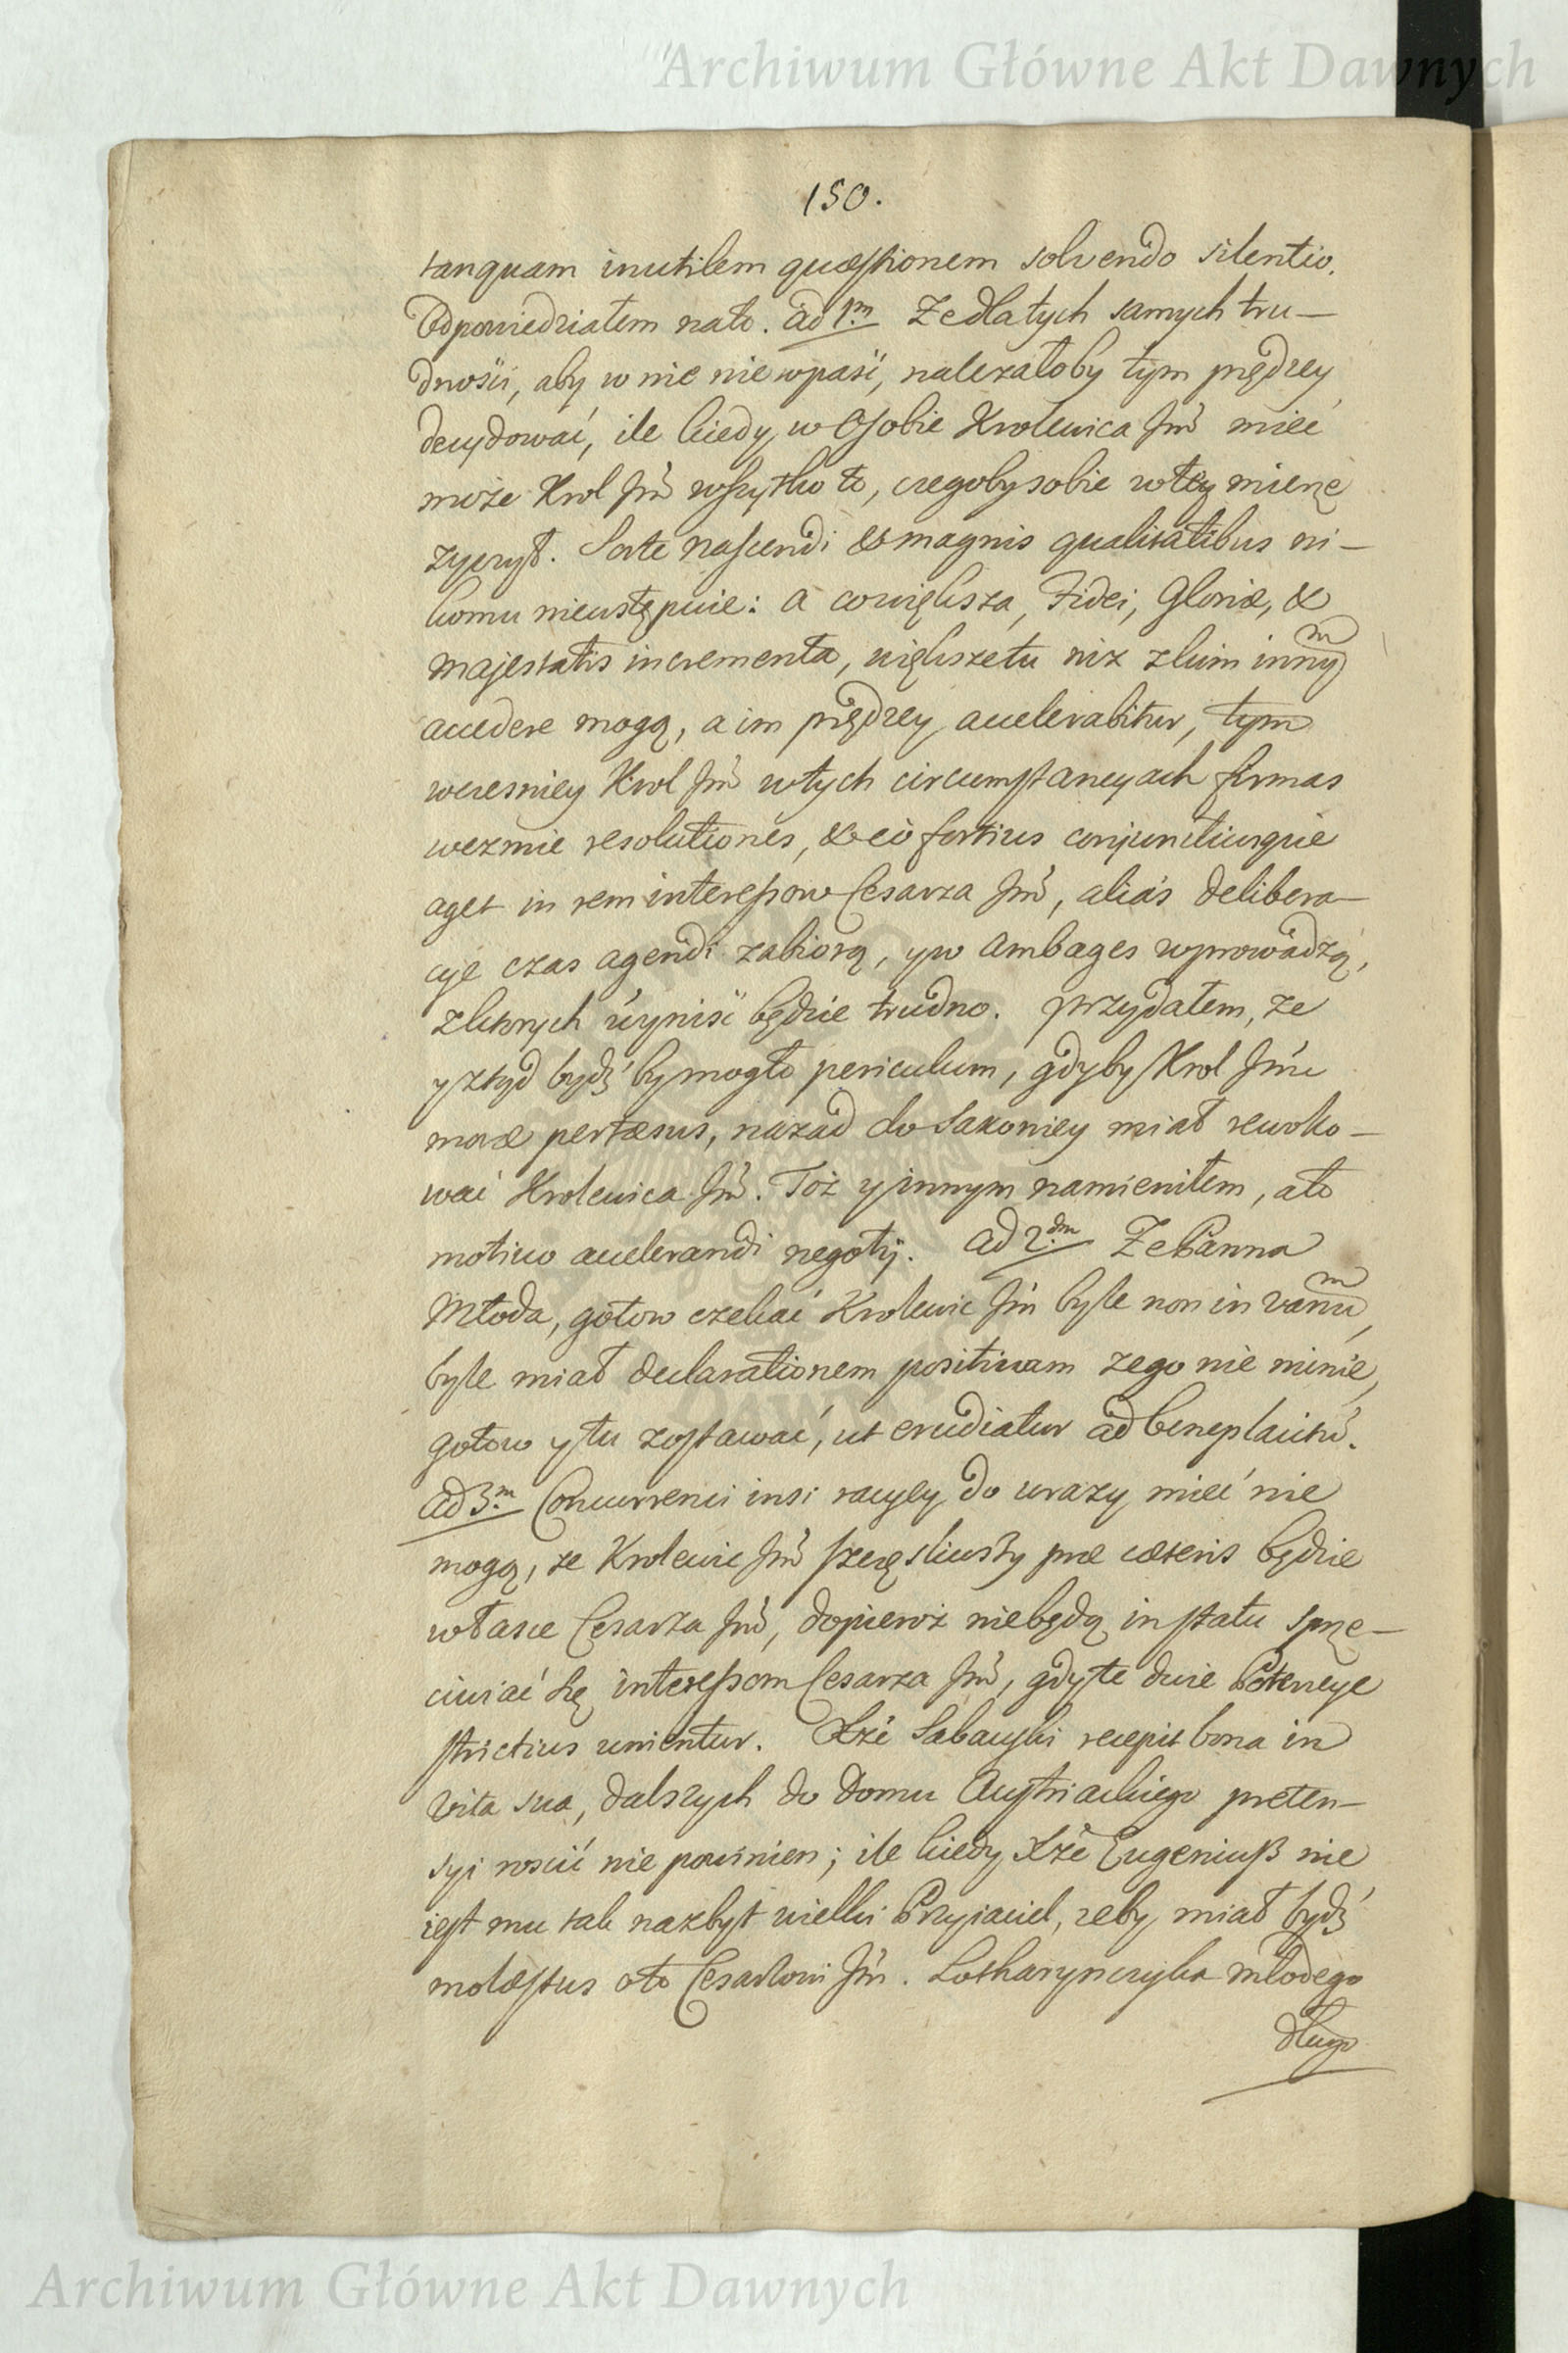 Archiwum Główne Akt Dawnych
150.
tanquam inutilem quæstionem solvendo silentio.
Odpowiedziałem nato. ad 1.m Ze dla tych samych tru-
dności, aby w nie nie wpaść, nalezałoby tym prędzey
decydować, ile kiedy w Osobie Krolewica Jmć mieć
może Krol Jmć wszytko to, czegoby sobie w tey mierze
zyczył. Sorte nascendi & magnis qualitatibus ni-
komu nieustępuie: a cowiększa, Fidei, Gloriæ, &
Majestatis incrementa, większe tu niz z kim innym
accedere mogą, a im prędzey accelerabitur, tym
wczesniey Krol Jmć w tych circumstancyach firmas
wezmie resolutiones, & eò fortius conjunctiusque
aget in rem interessow Cesarza Jmć, aliàs delibera-
cye czas agendi zabiorą, y w ambages wprowadzą,
z ktorych wyniść będzie trudno. przydałem, ze
y ztąd bydź by mogło periculum, gdyby Krol Jmć
moræ pertæsus, nazad do Saxoniey miał rewoko-
wać Krolewica Jmć. Toż y innym namieniłem, a to
motivo accelerandi negotij. ad 2.dm Ze Panna
Młoda, gotow czekać Krolewic Jmć byle non in vanum,
byle miał declarationem positivam ze go nie minie,
gotow y tu zostawać, ut erudiatur ad beneplacitũ.
ad 3.m Concurrenci insi racyey do urazy mieć nie
mogą, ze Krolewic Jmć szczęsliwszy præ cæteris będzie
w łasce Cesarza Jmć, dopieroż niebędą in statu sprze-
ciwiać się interessom Cesarza Jmć, gdy te dwie Potencye
strictius unientur. Xże Sabaudzki recepit bona in
vita sua, dalszych do Domu Austriackiego preten-
syi rościć nie powinien; ile kiedy Xże Eugeniusz nie
iest mu tak nazbyt wielki Przyiaciel, zeby miał bydź
molestus o to Cesarzowi Jmć. Lotharynczyka młodego
długo
Archiwum Główne Akt Dawnych